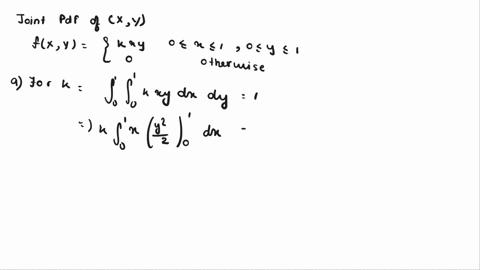 Joint Pdf of (X,Y)
f(x,y) = { kxy 0 ≤ x ≤ 1 , 0 ≤ y ≤ 1
0 otherwise
a) For k = ∫₀¹ ∫₀¹ k xy dx dy = 1
=) k ∫₀¹ x (y²/2)₀¹ dx =